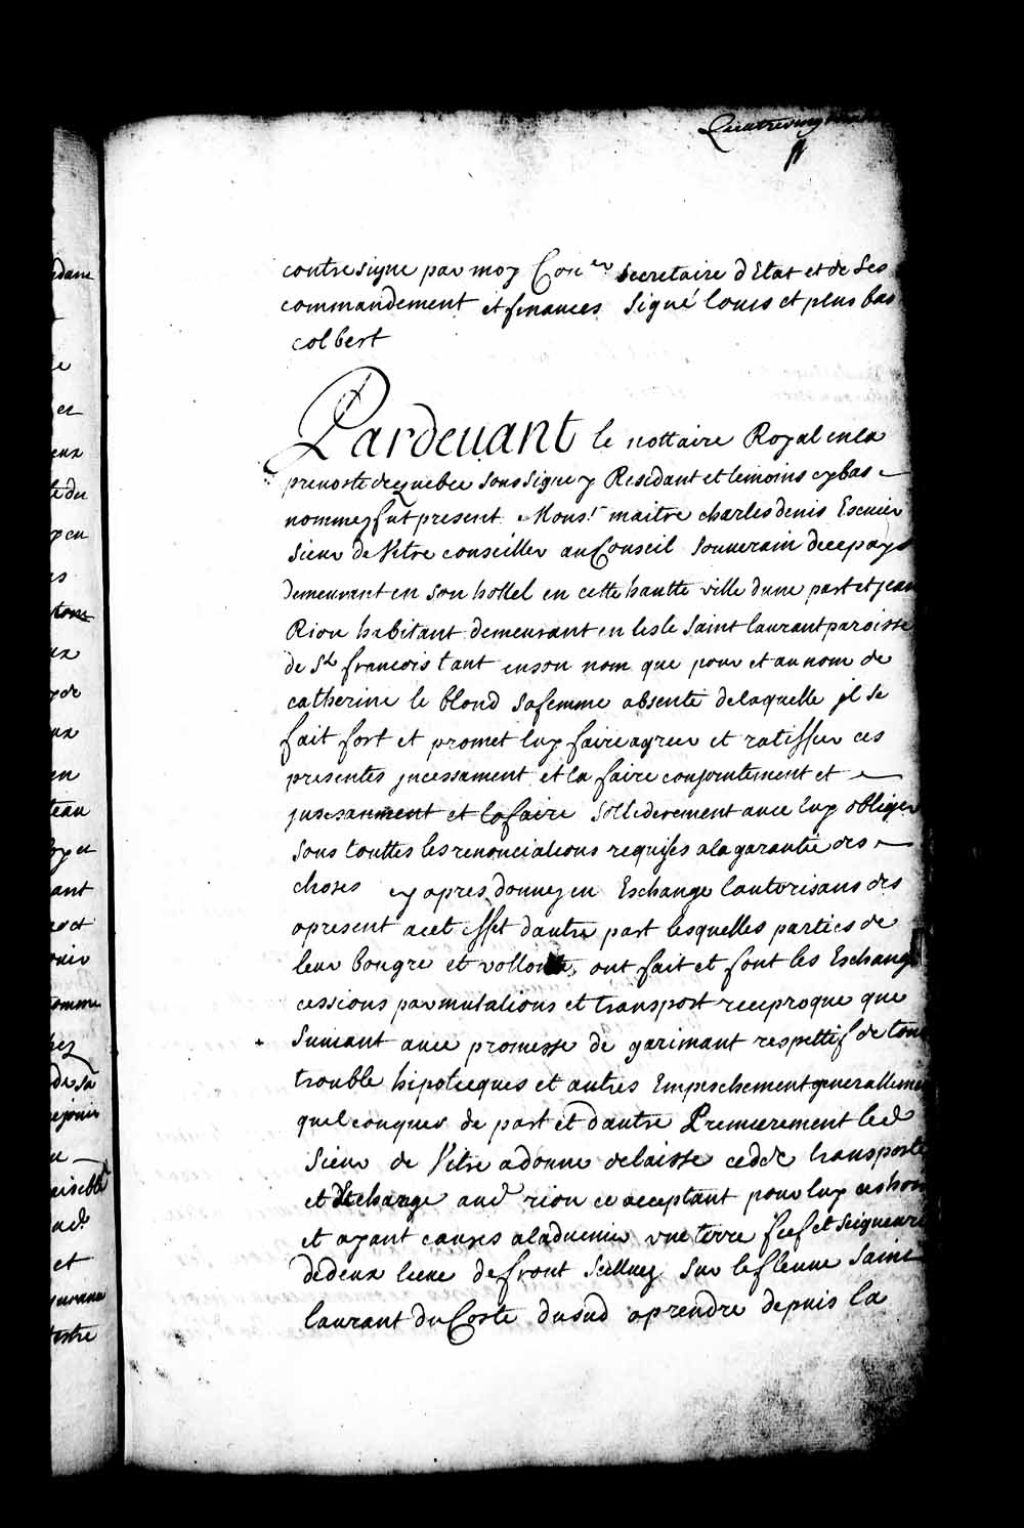 contresigne par moy Con.er Secretaire dEtat et de Ses
commandement et finances Signé Louis et plus bas
colbert
Pardeuant le nottaire Royal en la
preuoste de quebec sous signey Residant et temoins cy bas
nommez fut present Mons.r maitre charles denis Escuier
Sieur de Vitre conseiller au Conseil Souuerain de ce pays
demeurant en son hottel en cette hautte ville dune part et jean
Riou habitant demeurant en lisle Saint laurant paroisse
de St francois tant en son nom que pour et au nom de
catherine le blond sa femme absente de laquelle jl se
fait fort et promet luy faire agreer et ratiffier ces
presentes jncessament et la faire conjointement et
jncessanment et la faire sollederement auec luy obliger
sous touttes les renonciations requises a la garantie des
choses cy apres donney en Eschange lautorisans des
apresent a cet effet dautre part lesquelles parties de
leur bongre et vollonte, ont fait et font les Eschange
cessions parmutations et transport reciproque que
Suiuant auec promesse de garimant respettif de tous
trouble hipotecques et autres Empeschement generallement
quelconques de part et dautre Premierement led
Sieur de Vitre a donne delaisse cedde transporte
et Eschange aud rion ce acceptant pour luy ces hoirs
et ayant causes a laduenir vne terre fief et seigneurie
de deux lieue de front Scittuez Sur le fleuue Saint
laurant du Coste du sud a prendre depuis la